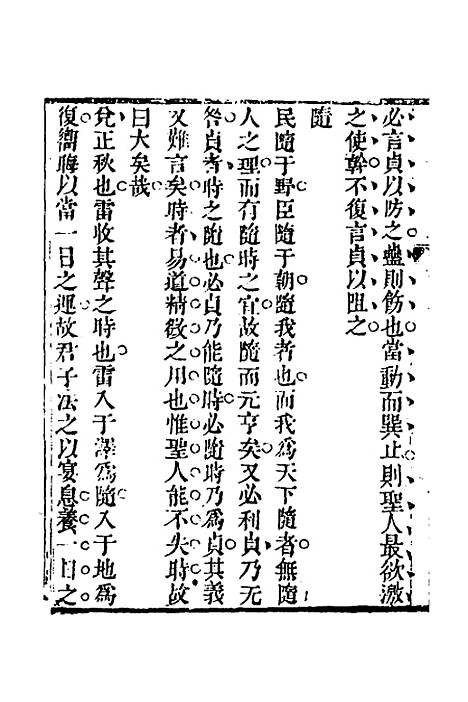 必言貞以防之蠱則飭也當動而巽止則聖人最欲激
之使幹不復言貞以阻之
隨
民隨于野臣隨于朝隨我者也而我為天下隨者無隨
人之理而有隨時之宜故隨而元亨矣又必利貞乃无
咎貞者時之隨也必貞乃能隨時必隨時乃為貞其義
又難言矣時者易道精微之用也惟聖人能不失時故
曰大矣哉
兌正秋也雷收其聲之時也雷入于澤為隨入于地為
復嚮晦以當一日之運故君子法之以宴息養一日之